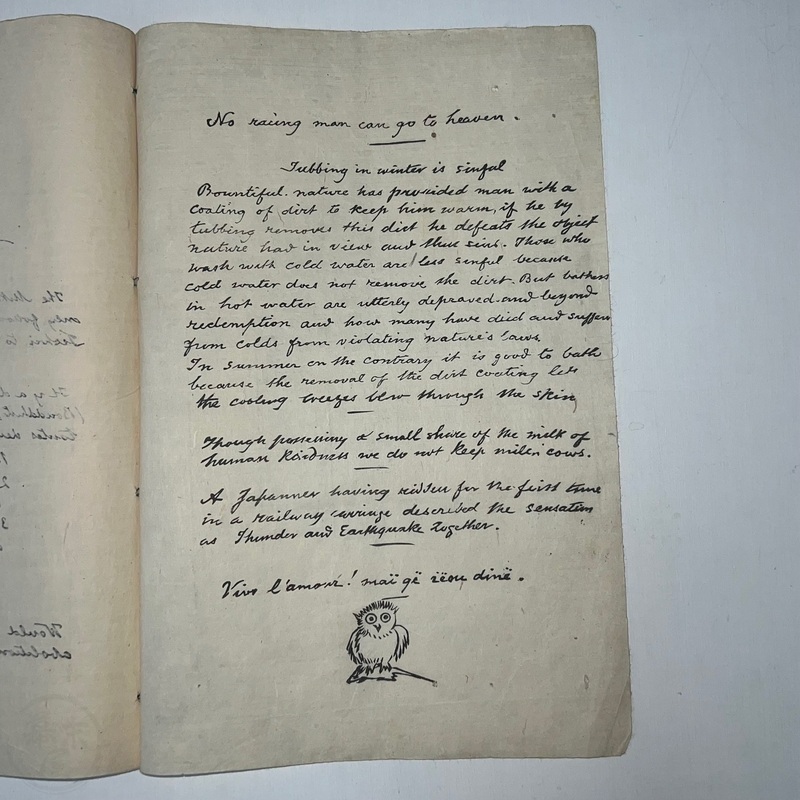 No racing man can go to heaven.
Tubbing in winter is sinful
Bountiful. nature has provided man with a
coating of dirt to keep him warm, if he by
tubbing removes this dirt he defeats the object
nature had in view and thus sins. Those who
wash with cold water are less sinful because
cold water does not remove the dirt. But bathers
in hot water are utterly depraved. and beyond
redemption and how many have died and suffered
from colds from violating nature's laws.
In summer on the contrary it is good to bathe
because the removal of the dirt coating lets
the cooling breezes blow through the skin
Though possessing a small share of the milk of
human kindness we do not keep milch cows.
A Japanner having ridden for the first time
in a railway carriage described the sensation
as Thunder and Earthquake together.
Vive l'amour! maï gë
The
only
Would
abolition